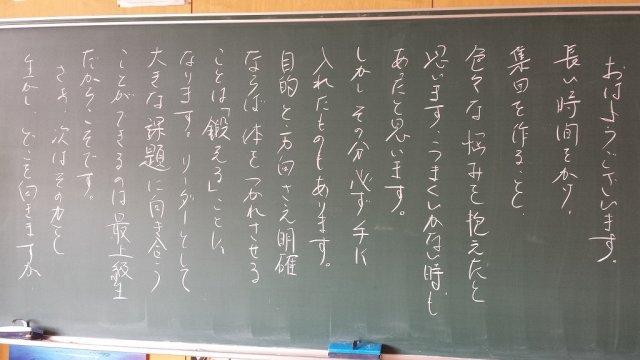 おはようございます。
長い時間をかけ、
集団を作ること、
色々な悩みを抱えたと
思います。うまくいかない時も
あったと思います。
しかし その分 必ず手に
入れたものもあります。
目的と方向さえ明確
ならば 体をつかれさせる
ことは「鍛える」ことに
なります。リーダーとして
大きな課題に向き合う
ことができるのは 最上級生
だからこそです。
さあ、次はその力を
生かし、どこを向きますか